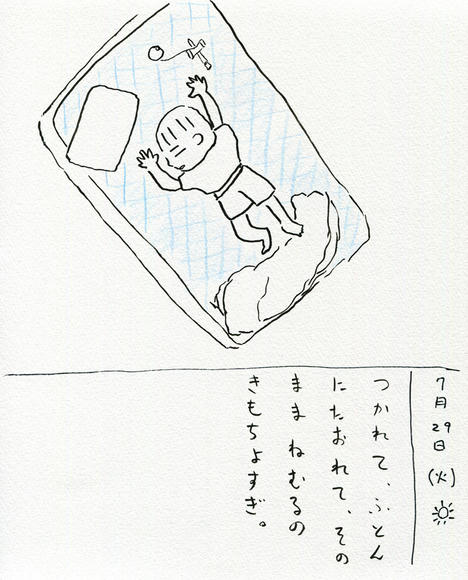 7月29日(火)
つかれて、ふとん
にたおれて、その
まま ねむるの
きもちよすぎ。